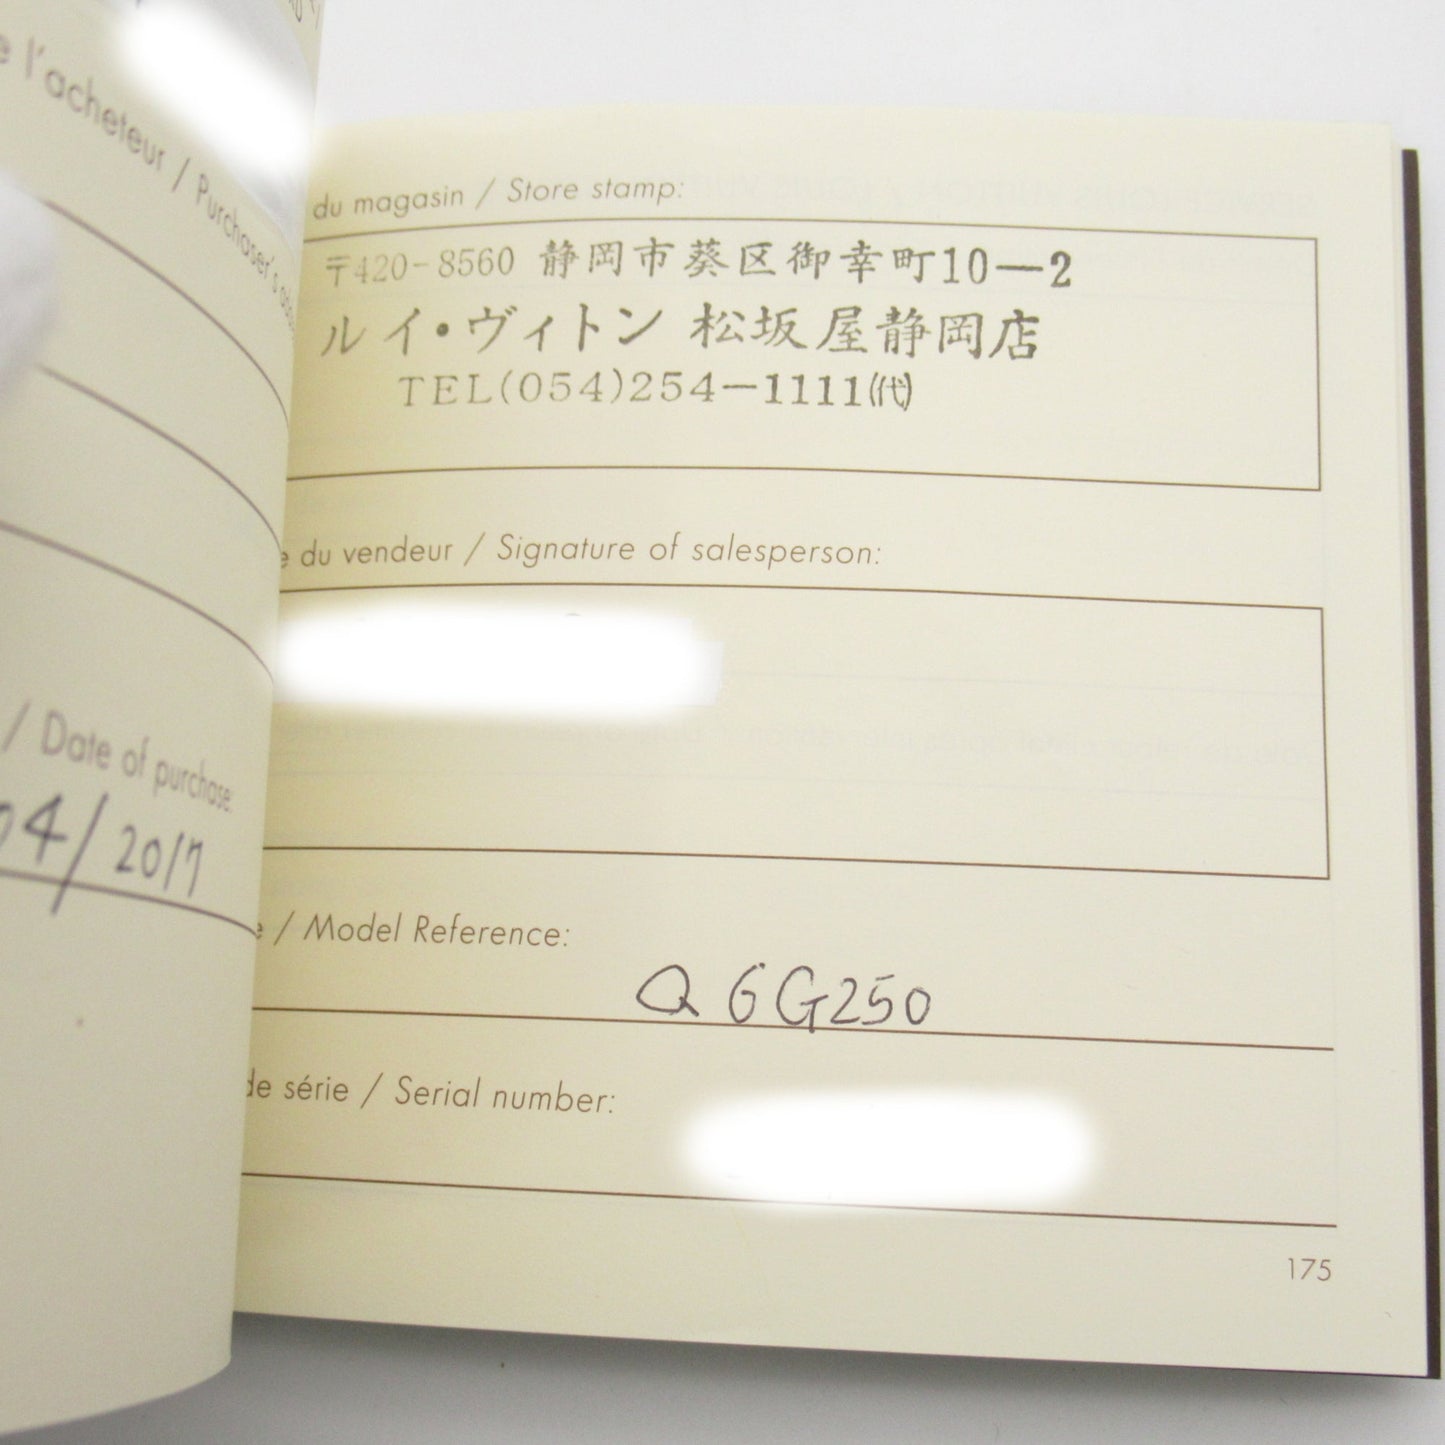 l'acheteur / Purchaser's
/ Date of purchase:
04/2017
du magasin / Store stamp:
〒420-8560 静岡市葵区御幸町10-2
ルイ・ヴィトン 松坂屋静岡店
TEL(054)254-1111(代)
du vendeur / Signature of salesperson:
/ Model Reference:
Q6G250
de série / Serial number:
175